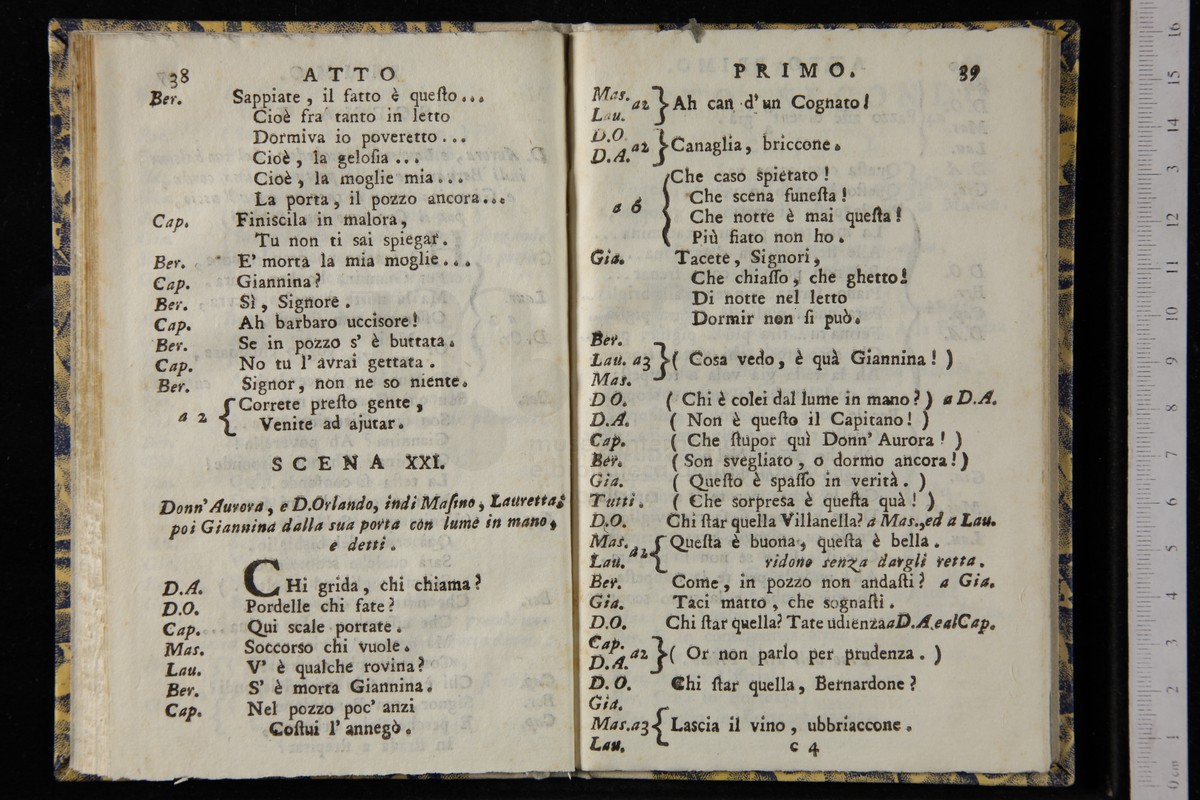 38 ATTO
Ber. Sappiate, il fatto è queſto...
Cioè fra tanto in letto
Dormiva io poveretto...
Cioè, la geloſia...
Cioè, la moglie mia...
La porta, il pozzo ancora...
Cap. Finiscila in malora,
Tu non ti sai spiegar.
Ber. E' morta la mia moglie...
Cap. Giannina?
Ber. Sì, Signore.
Cap. Ah barbaro uccisore!
Ber. Se in pozzo s' è buttata.
Cap. No tu l' avrai gettata.
Ber. Signor, non ne so niente.
a 2 { Correte preſto gente,
Venite ad ajutar.
SCENA XXI.
Donn' Aurora, e D.Orlando, indi Maſino, Lauretta;
poi Giannina dalla sua porta con lume in mano,
e detti.
D.A. CHi grida, chi chiama?
D.O. Pordelle chi fate?
Cap. Qui scale portate.
Mas. Soccorso chi vuole.
Lau. V' è qualche rovina?
Ber. S' è morta Giannina.
Cap. Nel pozzo poc' anzi
Coſtui l' annegò.
PRIMO. 39
Mas.
Lau. a2 } Ah can d' un Cognato!
D.O.
D.A. a2 } Canaglia, briccone.
a 6 { Che caso spietato!
Che scena funeſta!
Che notte è mai queſta!
Più fiato non ho.
Gia. Tacete, Signori,
Che chiaſſo, che ghetto!
Di notte nel letto
Dormir non ſi può.
Ber.
Lau. a3 } ( Cosa vedo, è quà Giannina! )
Mas.
D O. ( Chi è colei dal lume in mano? ) a D.A.
D.A. ( Non è queſto il Capitano! )
Cap. ( Che ſtupor quì Donn' Aurora! )
Ber. ( Son svegliato, o dormo ancora! )
Gia. ( Queſto è spaſſo in verità. )
Tutti. ( Che sorpresa è queſta quà! )
D.O. Chi ſtar quella Villanella? a Mas., ed a Lau.
Mas.
Lau. a2 { Queſta è buona, queſta è bella.
ridono senza dargli retta.
Ber. Come, in pozzo non andaſti? a Gia.
Gia. Taci matto, che sognaſti.
D.O. Chi ſtar quella? Tate udienza a D.A. e al Cap.
Cap.
D.A. a2 } ( Or non parlo per prudenza. )
D. O. Chi ſtar quella, Bernardone?
Gia.
Mas. a3 { Lascia il vino, ubbriaccone.
Lau.
C 4